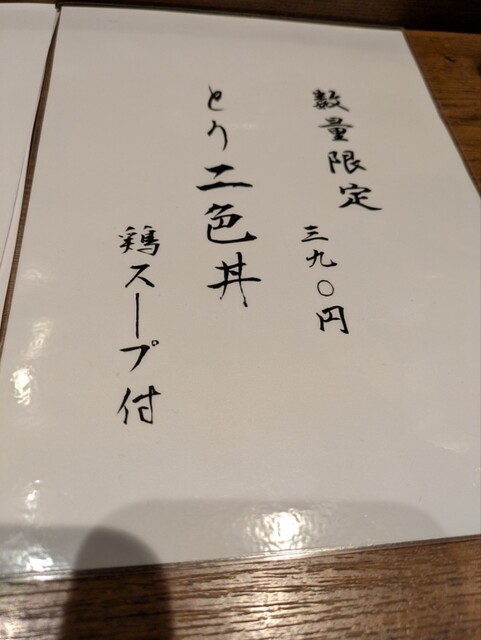 数量限定
三九〇円
とり二色丼
鶏スープ付